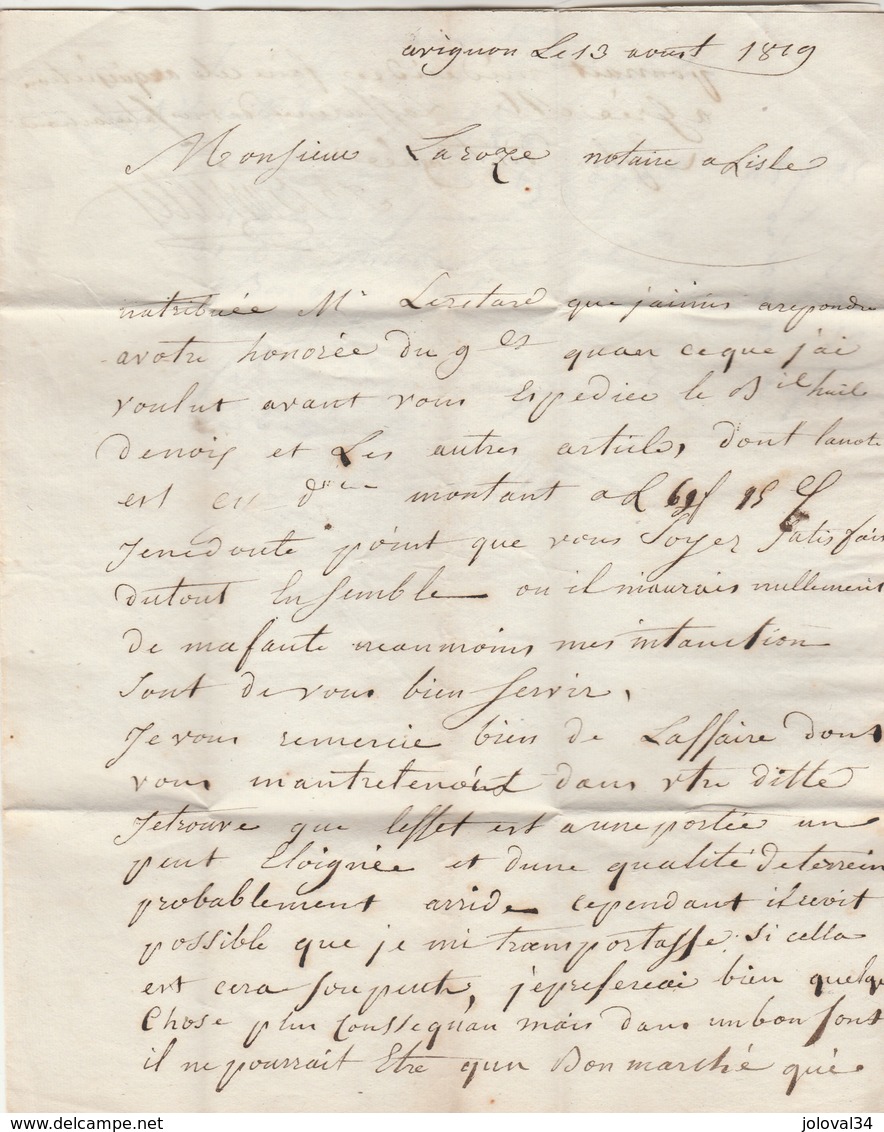 avignon Le 13 aoust 1819
Monsieur Laroze notaire a Lisle
natribuée Mr Leretard que jaimis arepondre
avotre honorée du 9 et quaer ceque j'ai
voulut avant vous Expedier le Bil huile
denoix et Les autres article, dont lanote
est cy montant a L 69f 15
Jenedoute point que vous Soyez Satisfais
dutout Ensemble ou il niaurais nullement
de mafaute neanmoins mes intanction
Sont de vous bien Servir,
Je vous remercie bien de Laffaire dont
vous mantretenoint dans vtre ditte
Jetrouve que leffet est aune portée un
peut Eloignée et dune qualité deterrein
probablement arride cependant il seroit
possible que je mi transportasse. Si cella
est cera Sou peuth, j'epreferai bien quelqu
Chose plus Consequan mais dans un bon font
il ne pourrait Etre qun Bon marché qué
joloval34